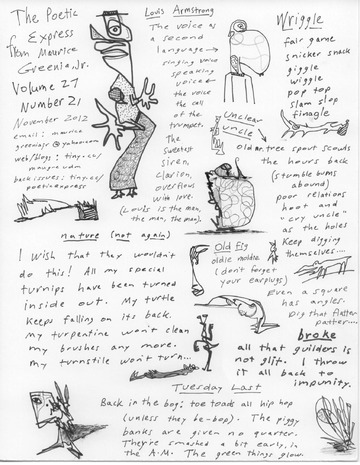 The Poetic
Express
from Maurice
Greenia, Jr.
Volume 27
Number 21
November 2012
email: maurice
greeniajr@yahoo.com
web/blogs: tiny.cc/
back issues: tiny.cc/
poeticexpress
Louis Armstrong
The voice as
a second
language →
singing voice
speaking
voice ←
the voice
the call
of the
trumpet.
The
sweetest
siren,
clarion,
overflows
with love.
(Louis is the men,
the man, the man).
Wriggle
fair game
snicker snack
giggle
wiggle
pop top
slam slop
finagle
Unclear
uncle
Old man tree spout scouts
the hours back
(stumble bums
abound)
poor relations
hoot and
"cry uncle"
as the holes
Keep digging
themselves....
nature (not again)
I wish that they wouldn't
do this! All my special
turnips have been turned
inside out. My turtle
keeps falling on its back.
My turpentine won't clean
my brushes any more.
My turnstile won't turn...
Old Fig
oldie moldie
(don't forget
your earplugs)
Even a square
has angles.
Dig that flatten
patter...
broke
all that guilders is
not glift. I throw
it all back to
impunity.
Tuesday Last
Back in the bog: toe toads all hip hop
(unless they be-bop). The piggy
banks are given no quarter.
They're smashed a bit early, in
the A.M. The green things glow.